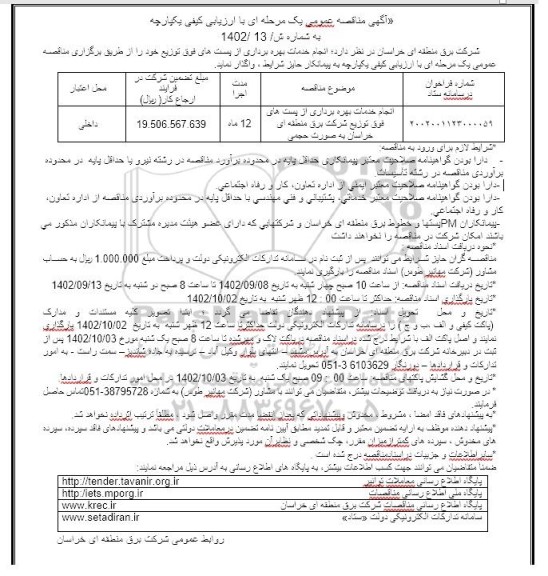 «آگهی مناقصه عمومی یک مرحله ای با ارزیابی کیفی یکپارچه
به شماره ش/ 13 /1402
شرکت برق منطقه ای خراسان در نظر دارد؛ انجام خدمات بهره برداری از پست های فوق توزیع خود را از طریق برگزاری مناقصه
عمومی یک مرحله ای با ارزیابی کیفی یکپارچه به پیمانکار حایز شرایط ، واگذار نمایند.
شماره فراخوان درسامانه ستاد
موضوع مناقصه
مدت اجرا
مبلغ تضمین شرکت در فرایند ارجاع کار( ریال)
محل اعتبار
۲۰۰۲۰۰۱۱۲۳۰۰۰۰۵۹
انجام خدمات بهره برداری از پست های فوق توزیع شرکت برق منطقه ای خراسان به صورت حجمی
12 ماه
19.506.567.639
داخلی
*شرایط لازم برای ورود به مناقصه:
- دارا بودن گواهینامه صلاحیت معتبر پیمانکاری حداقل پایه در محدوده برآورد مناقصه در رشته نیرو یا حداقل پایه در محدوده
برآوردی مناقصه در رشته تاسیسات
-دارا بودن گواهینامه صلاحیت معتبر ایمنی از اداره تعاون، کار و رفاه اجتماعی
-دارا بودن گواهینامه صلاحیت معتبر خدماتی، پشتیبانی و فنی مهندسی با حداقل پایه در محدوده برآوردی مناقصه از اداره تعاون،
کار و رفاه اجتماعی.
-پیمانکاران PMپستها و خطوط برق منطقه ای خراسان و شرکتهایی که دارای عضو هیئت مدیره مشترک با پیمانکاران مذکور می
باشند امکان شرکت در مناقصه را نخواهند داشت
*نحوه دریافت اسناد مناقصه:
مناقصه گران حایز شرایط می توانند پس از ثبت نام در سامانه تدارکات الکترونیکی دولت و پرداخت مبلغ 1.000.000 ریال به حساب
مشاور (شرکت مهانیر طوس) اسناد مناقصه را بارگیری نمایند.
*تاریخ دریافت اسناد مناقصه: از ساعت 10 صبح چهار شنبه به تاریخ 1402/09/08 تا ساعت 8 صبح دو شنبه به تاریخ 1402/09/13
*تاریخ بارگذاری اسناد مناقصه: حداکثر تا ساعت 00 : 12 ظهر شنبه به تاریخ 1402/10/02
*تاریخ و محل تحویل اسناد: از پیشنهاد دهندگان تقاضا می گردد ، ابتدا تصویر کلیه مستندات و مدارک
(پاکت کیفی و الف ،ب و ج ) را در سامانه تدارکات الکترونیکی دولت حداکثر تا ساعت 12 ظهر شنبه به تاریخ 1402/10/02 بارگذاری
نمایند و اصل پاکت الف با شرایط درج شده در اسناد مناقصه به پاکت لاک و مهر شده تا ساعت 8 صبح یک شنبه مورخ 1402/10/03 پس از
ثبت در دبیرخانه شرکت برق منطقه ای خراسان به آدرس مشهد – انتهای بلوار وکیل آباد – نرسیده به جاده شاندیز– سمت راست - به امور
تدارکات و قراردادها – دورنگار 6103629 3-051 تحویل نمایند.
*تاریخ و محل گشایش پاکتهای مناقصه: ساعت 00 : 09 صبح یک شنبه به تاریخ 1402/10/03 در محل امور تدارکات و قراردادها
* در صورت نیاز به دریافت توضیحات بیشتر، متقاضیان می توانند با مشاور (شرکت مهانیر طوس) به شماره 38795728-051تماس حاصل
فرمایند.
*به پیشنهادهای فاقد امضا ، مشروط ، مخدوش و پیشنهاداتی که بعد از انقضا مدت مقرر واصل شود ، مطلقاً ترتیب اثر داده نخواهد شد.
*پیشنهاد دهنده موظف به ارایه تضمین معتبر و قابل تمدید مطابق آیین نامه تضمین در معاملات دولتی می باشد و پیشنهادهای فاقد سپرده، سپرده
های مخدوش ، سپرده های کمتر از میزان مقرر، چک شخصی و نظایر آن مورد پذیرش واقع نخواهد شد.
*سایر اطلاعات و جزییات در اسناد مناقصه درج شده است .
ضمناً متقاضیان می توانند جهت کسب اطلاعات بیشتر، به پایگاه های اطلاع رسانی به آدرس ذیل مراجعه نمایند:
پایگاه اطلاع رسانی معاملات توانیر http://tender.tavanir.org.ir
پایگاه ملی اطلاع رسانی مناقصات http://iets.mporg.ir
پایگاه اطلاع رسانی مناقصات شرکت برق منطقه ای خراسان www.krec.ir
سامانه تدارکات الکترونیکی دولت «ستاد» www.setadiran.ir
روابط عمومی شرکت برق منطقه ای خراسان